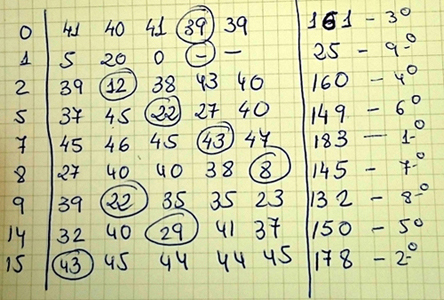 0 41 40 41 39 39 161 - 3º
1 5 20 0 - - 25 - 9º
2 39 12 38 43 40 160 - 4º
5 37 45 22 27 40 149 - 6º
7 45 46 45 43 47 183 - 1º
8 27 40 40 38 8 145 - 7º
9 39 22 35 35 23 132 - 8º
14 32 40 29 41 37 150 - 5º
15 43 45 44 44 45 178 - 2º